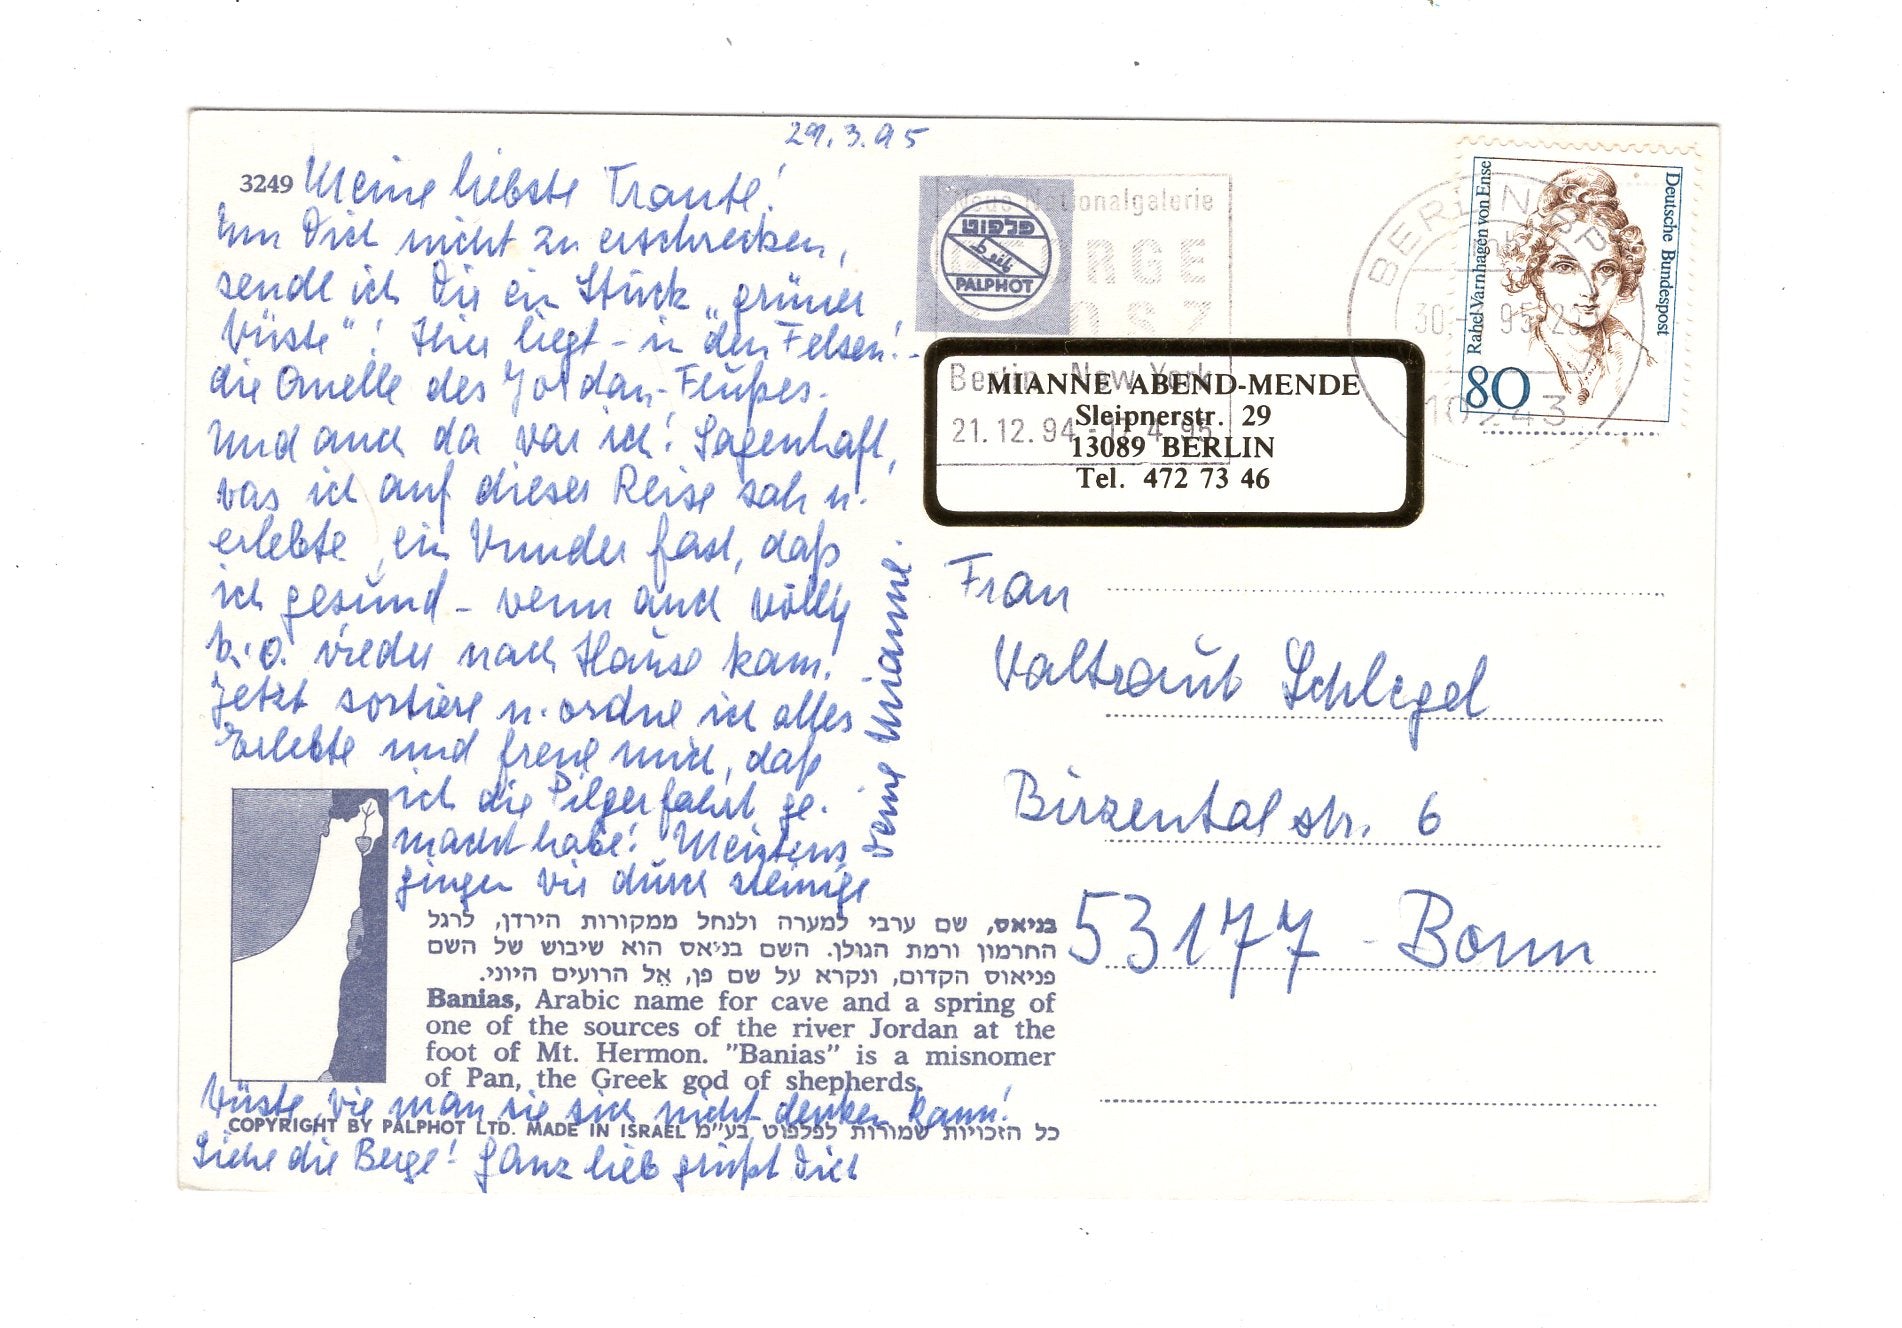 29.3.95
3249
Meine liebste Traute!
Um Dich nicht zu erschrecken,
sende ich Dir ein Stück "grüner
Wüste"! Hier liegt - in den Felsen! -
die Quelle des Jordan-Flußes.
Und auch da war ich! Sagenhaft,
was ich auf dieser Reise sah u.
erlebte, ein Wunder fast, daß
ich gesund - wenn auch völlig
k.o. wieder nach Hause kam!
Jetzt sortiere u. ordne ich alles
Erlebte und freue mich, daß
ich die Pilgerfahrt ge-
macht habe! Meistens
gingen wir durch steinige
Wüste, wie man sie sich nicht denken kann!
Siehe die Berge! Ganz lieb grüßt Dich
Deine Mianne.
בניאס, שם ערבי למערה ולנחל ממקורות הירדן, לרגל
החרמון ורמת הגולן. השם בניאס הוא שיבוש של השם
פניאוס הקדום, ונקרא על שם פן, אל הרועים היווני.
Banias, Arabic name for cave and a spring of
one of the sources of the river Jordan at the
foot of Mt. Hermon. "Banias" is a misnomer
of Pan, the Greek god of shepherds.
COPYRIGHT BY PALPHOT LTD. MADE IN ISRAEL כל הזכויות שמורות לפלפוט בע"מ
פלפוט
PALPHOT
Neue Nationalgalerie
GEORGE
GROSZ
Berlin - New York
21.12.94 - 17.4.95
MIANNE ABEND-MENDE
Sleipnerstr. 29
13089 BERLIN
Tel. 472 73 46
BERLIN
30. 95
10243
Rahel Varnhagen von Ense
Deutsche Bundespost
80
Frau
Waltraut Schlegel
Birzentalstr. 6
53177 - Bonn